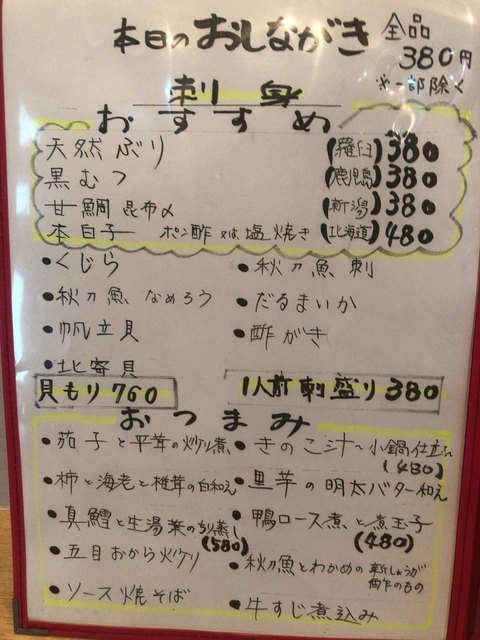 本日のおしながき 全品
380円
※一部除く
刺身
おすすめ
天然ぶり (羅臼) 380
黒むつ (鹿児島) 380
甘鯛昆布〆 (新潟) 380
本白子 ポン酢又は塩焼き (北海道) 480
・くじら ・秋刀魚刺
・秋刀魚なめろう ・だるまいか
・帆立貝 ・酢がき
・北寄貝
貝もり760 1人前刺盛り380
おつまみ
・茄子と平茸の炒り煮 ・きのこ汁〜小鍋仕立
(480)
・柿と海老と椎茸の白和え ・里芋の明太バター和え
・真鱈と生湯葉のちり蒸し ・鴨ロース煮と煮玉子
(580) (480)
・五目おから炒り ・秋刀魚とわかめの新しょうが
・ソース焼そば ・牛すじ煮込み